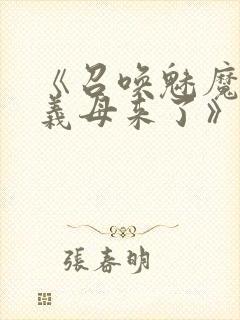 《召唤魅魔
義母来了》
張春明